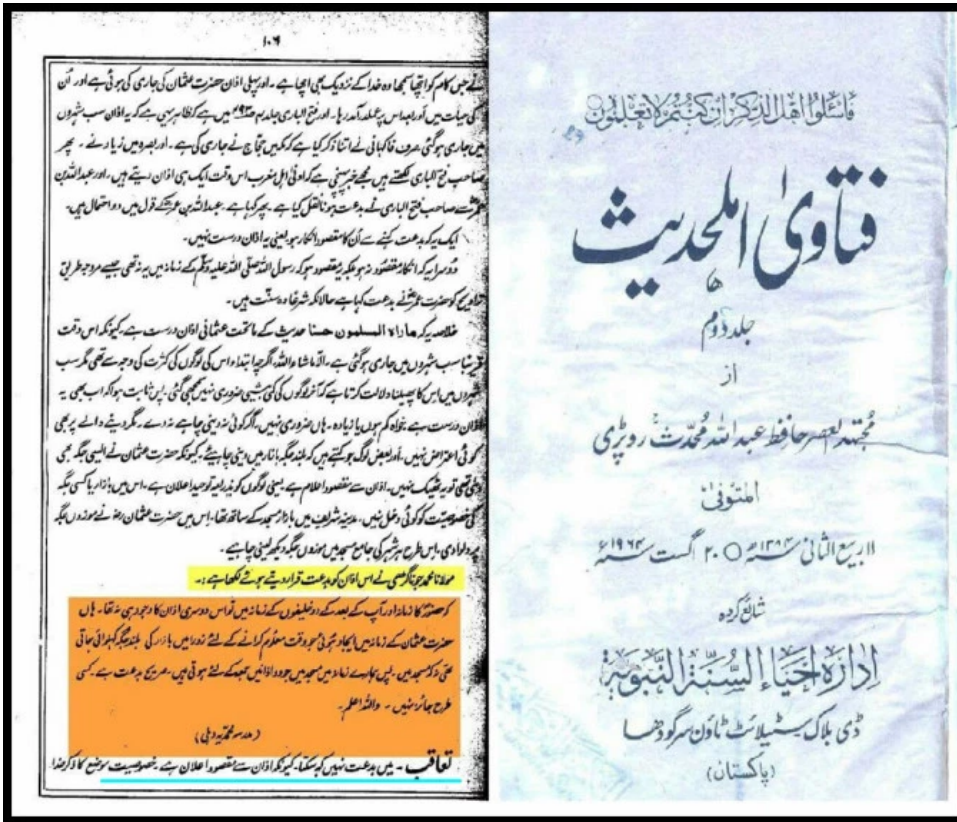 ۱۰۶
نے جس کام کو اچھا سمجھا وہ خدا کے نزدیک بھی اچھا ہے۔ اور پہلی اذان حضرت عثمان کی جاری کی ہوئی ہے اور اُن
کی حیات میں اور بعد اس پر عملدرآمد رہا۔ اور فتح الباری جلد میں ہے کہ ظاہر یہی ہے کہ یہ اذان سب شہروں
میں جاری ہو گئی صرف فاکہانی نے اتنا ذکر کیا ہے کہ مکہ میں حجاج نے جاری کی ہے۔ اور بصرہ میں زیاد نے۔ پھر
صاحب فتح الباری لکھتے ہیں مجھے خبر پہنچی ہے کہ ادنیٰ اہل مغرب اس وقت ایک ہی اذان دیتے ہیں، اور عبداللہ بن
عمرؓ سے صاحب فتح الباری نے بدعت ہونا نقل کیا ہے۔ پھر کہا ہے۔ عبداللہ بن عمرؓ کے قول میں دو احتمال ہیں۔
ایک یہ کہ بدعت کہنے سے اُن کا مقصود انکار ہو یعنی یہ اذان درست نہیں۔
دوسرا یہ کہ انکار مقصود نہ ہو بلکہ یہ مقصود ہو کہ رسول اللہ صلی اللہ علیہ وسلم کے زمانہ میں یہ نہ تھی جیسے مروجہ طریق
تراویح کو حضرت عمرؓ نے بدعت کہا ہے حالانکہ شرعًا وہ سنت ہیں۔
خلاصہ یہ کہ ماراہ المسلمون حسنا حدیث کے ماتحت عثمانی اذان درست ہے۔ کیونکہ اس وقت
قریبًا سب شہروں میں جاری ہو گئی ہے۔ الا ماشاء اللہ، اگرچہ ابتداء اس کی لوگوں کی کثرت کی وجہ سے تھی مگر سب
شہروں میں اس کا پھیلنا دلالت کرتا ہے کہ آخر لوگوں کی کمی بیشی ضروری نہیں سمجھی گئی، پس ثابت ہوا کہ اب بھی یہ
اذان درست ہے خواہ کم ہوں یا زیادہ۔ ہاں ضروری نہیں، اگر کوئی نہ دینی چاہے نہ دے۔ مگر دینے والے پر بھی
کوئی اعتراض نہیں۔ اور بعض لوگ جو کہتے ہیں کہ بلند جگہ بازار میں دینی چاہیے۔ کیونکہ حضرت عثمان نے ایسی جگہ بھی
دلوائی تھی تو یہ ٹھیک نہیں۔ اذان سے مقصود اعلام ہے یعنی لوگوں کو بذریعہ توحید اعلان ہے۔ اس میں بازار یا کسی جگہ
کی خصوصیت کو کوئی دخل نہیں، مدینہ شریف میں بازار مسجد کے ساتھ تھا۔ اس میں حضرت عثمان رضؓ نے موزوں جگہ
پر دلوا دی۔ اس طرح ہر شہر کی جامع مسجد میں موزوں جگہ دیکھ لینی چاہیے۔
مولانا محمد جوناگڑھی نے اس اذان کو بدعت قرار دیتے ہوئے لکھا ہے:۔
کہ حضورؐ کا زمانہ اور آپ کے بعد کے دو خلیفوں کے زمانہ میں تو اس دوسری اذان کا وجود ہی نہ تھا۔ ہاں
حضرت عثمان کے زمانہ میں ایجاد ہوئی جو وقت معلوم کرانے کے لئے زورا میں بازار کی بلند جگہ کہلوائی جاتی
تھی نہ کہ مسجد میں۔ پس ہمارے زمانہ میں مسجد میں جو دو اذانیں جمعہ کے لئے ہوتی ہیں۔ صریح بدعت ہے۔ کسی
طرح جائز نہیں۔ واللہ اعلم۔
(مدرسہ محمدیہ دہلی)
تعاقب۔ میں بدعت نہیں کہہ سکتا۔ کیونکہ اذان سے مقصود اعلان ہے۔ خصوصیت موضع کا ذکر
فَاسْئَلُوا اَهْلَ الذِّكْرِ اِنْ كُنْتُمْ لَا تَعْلَمُونَ
فتاویٰ اہلحدیث
جلد دوم
از
مجتہد العصر حافظ عبد اللہ محدث روپڑی
المتوفیٰ
۱۱ ربیع الثانی سنہ ۱۳۸۴ھ ○ ۲۰ اگست سنہ ۱۹۶۴ء
شائع کردہ
اِدَارَہ اِحْیَاءِ السُّنَّۃِ النَّبَوِیَّۃ
ڈی بلاک سیٹلائٹ ٹاؤن سرگودھا
(پاکستان)